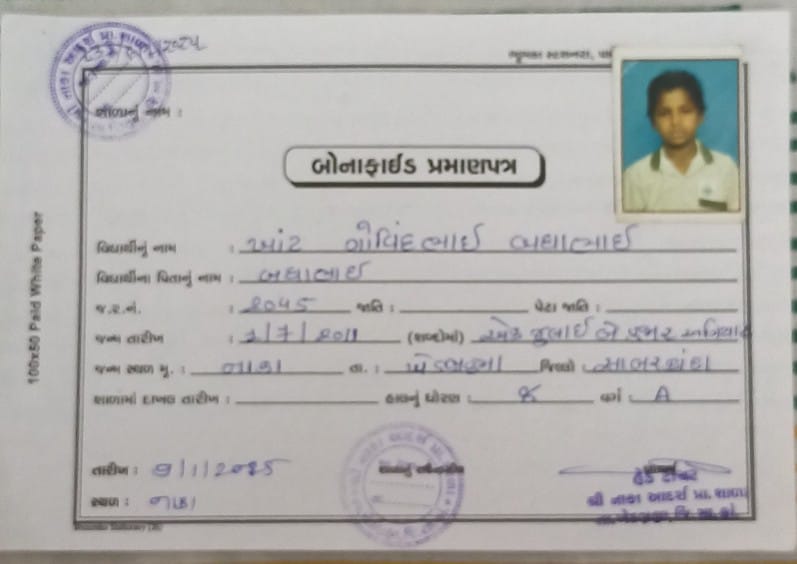 શાળાનું નામ :
બોનાફાઈડ પ્રમાણપત્ર
વિદ્યાર્થીનું નામ : ખાંટ ગોવિંદભાઈ બધાભાઈ
વિદ્યાર્થીના પિતાનું નામ : બધાભાઈ
જ.ર.નં. : ૨૦૪૫ જાતિ : પેટા જાતિ :
જન્મ તારીખ : 1/7/2011 (શબ્દોમાં) એક જુલાઈ બે હજાર અગિયાર
જન્મ સ્થળ મુ. : નાકા તા. : ખેડબ્રહ્મા જિલ્લો : સાબરકાંઠા
શાળામાં દાખલ તારીખ : હાલનું ધોરણ : ૪ વર્ગ : A
તારીખ : 9/1/2025
સ્થળ : નાકા
હેડ ટીચર
શ્રી નાકા આદર્શ પ્રા. શાળા
તા.ખેડબ્રહ્મા, જિ. સા.કાં.
100x50 Paid White Paper